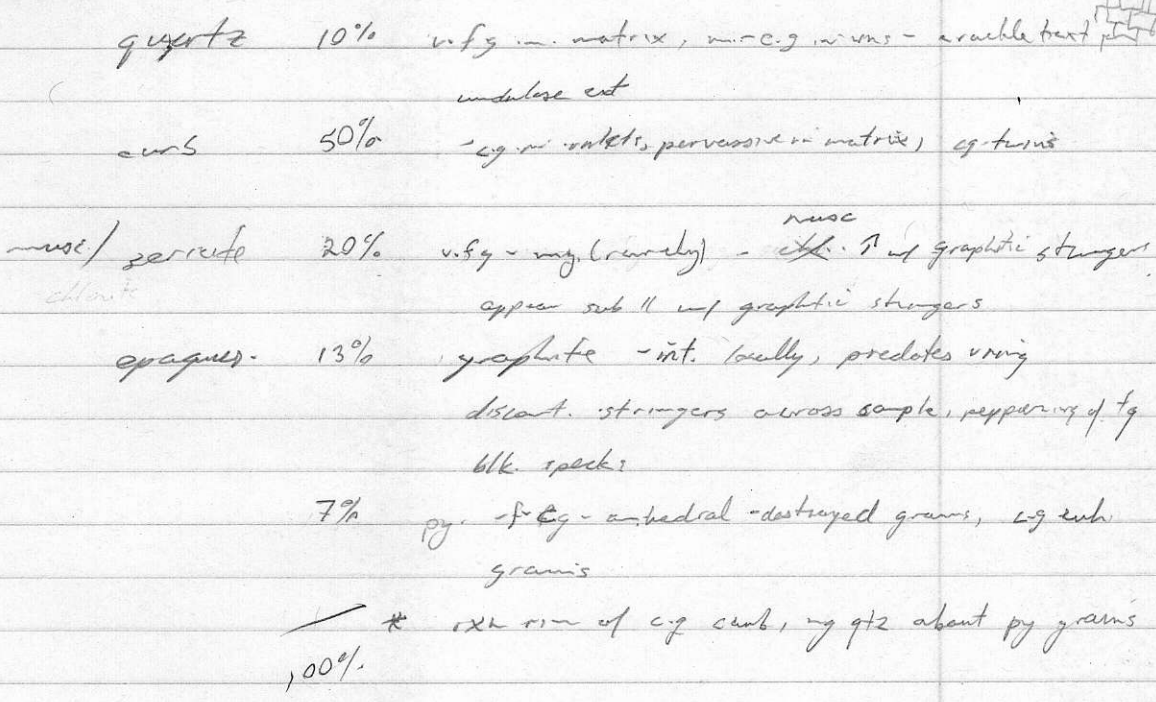 quartz 10% v.f.g in. matrix, m-c.g in vns - crackle text
undulose ext
carb 50% - cg in vnlets, pervassive in matrix, cg-twins
musc
musc/ sericite 20% v.f g - mg. (rarely) - chl. ↑ w/ graphitic stringers
chlorite appear sub || w/ graphtic stringers
opaques. 13% graphite - int. locally, predates vning
discont. stringers across sample, peppering of fg
blk. specks
7% py. - f-cg - anhedral - destroyed grains, c-g euh
grains
* rxn rim of c.g carb, mg qtz about py grains
100%